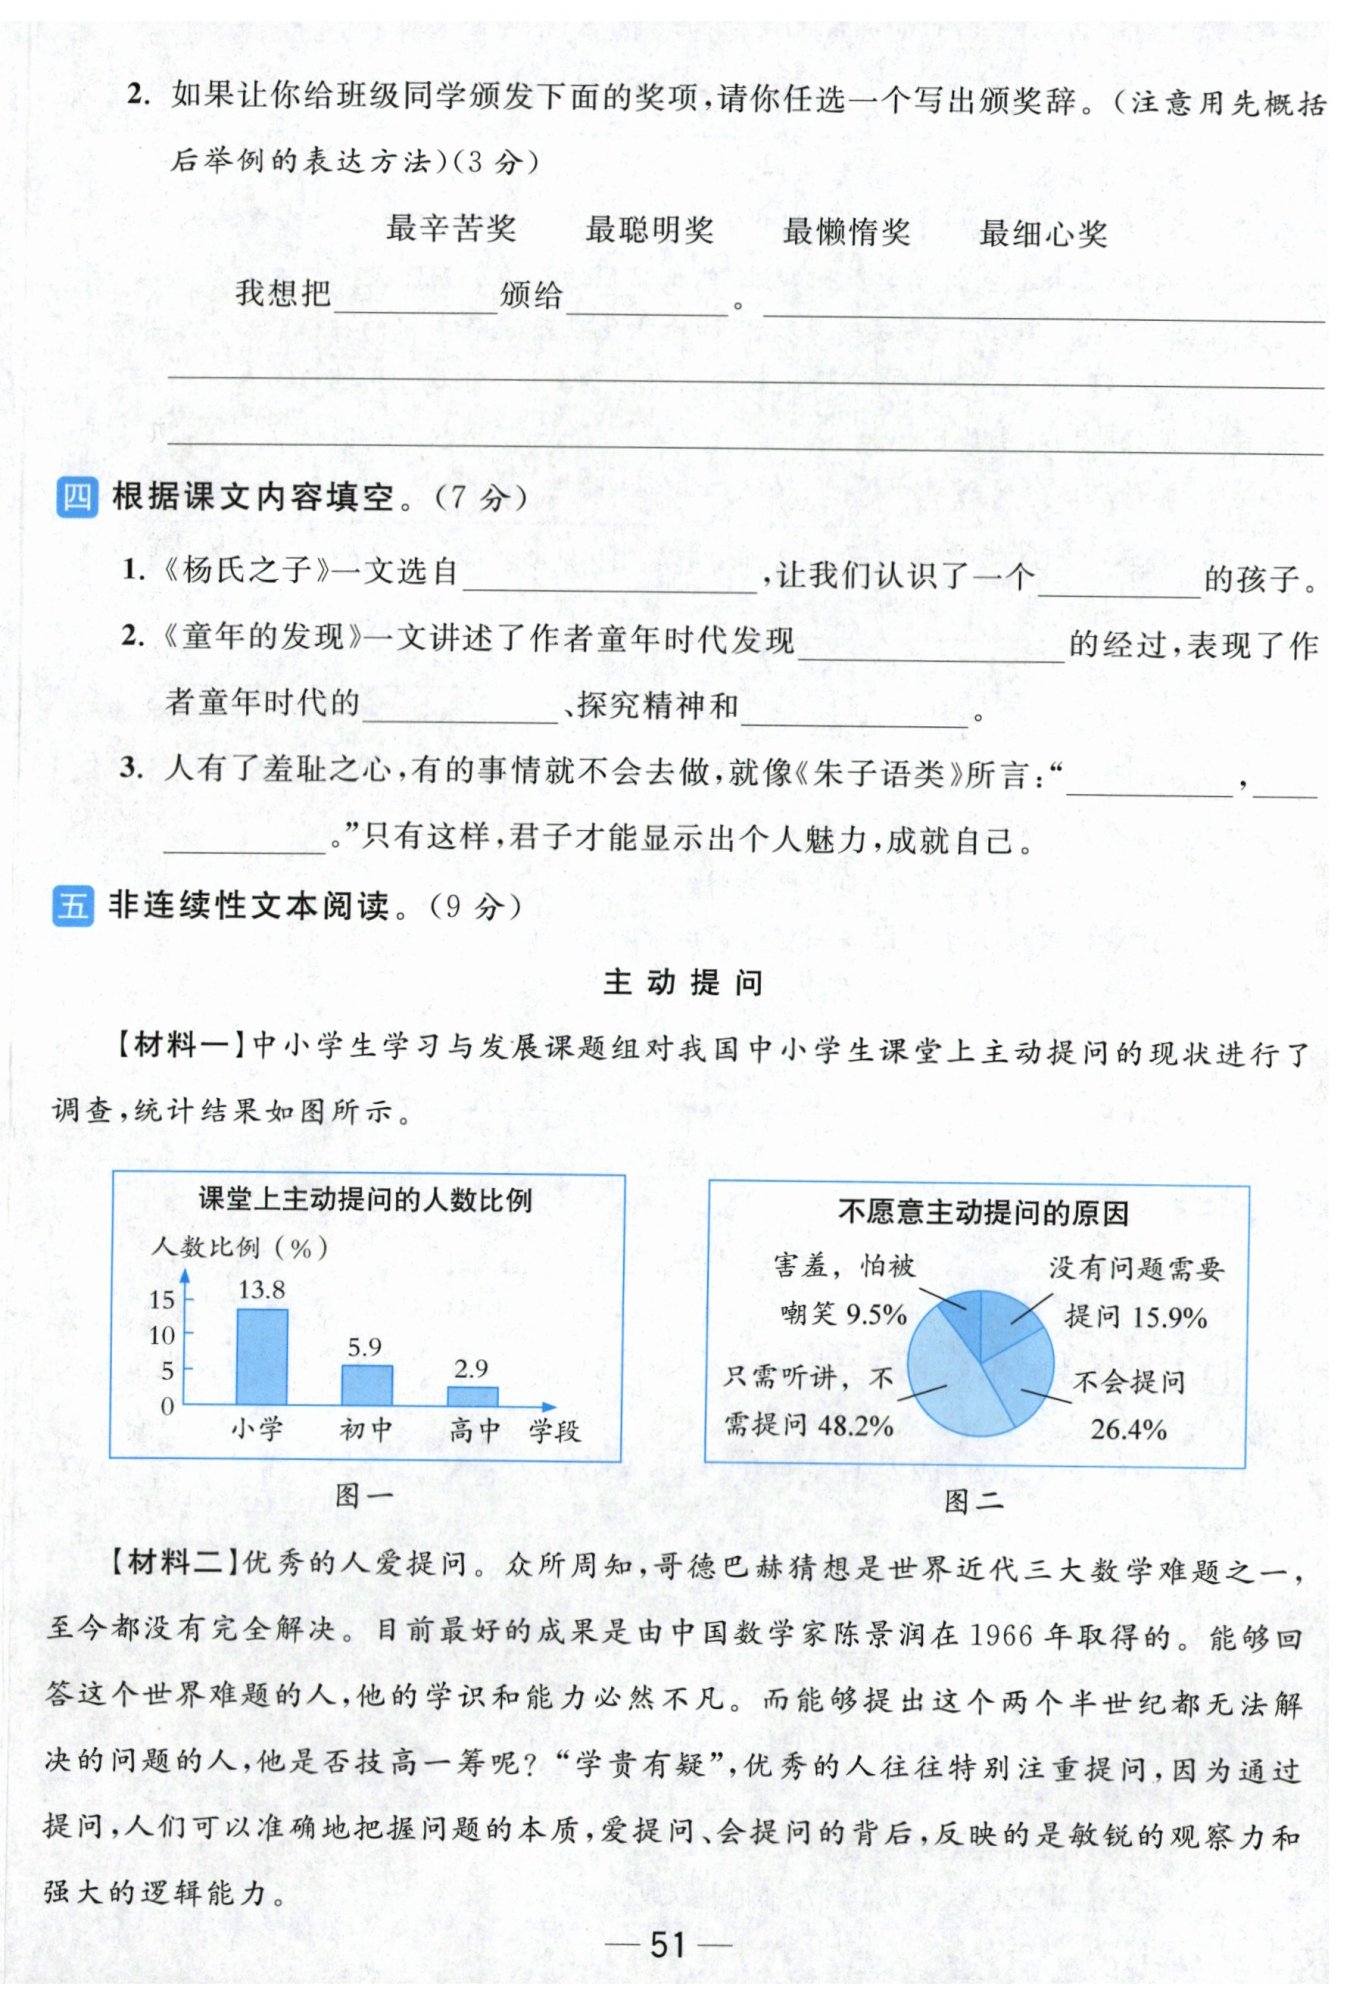 2. 如果让你给班级同学颁发下面的奖项,请你任选一个写出颁奖辞。(注意用先概括
后举例的表达方法)(3 分)
最辛苦奖 最聪明奖 最懒惰奖 最细心奖
我想把________颁给________。________
四 根据课文内容填空。(7 分)
1.《杨氏之子》一文选自________,让我们认识了一个________的孩子。
2.《童年的发现》一文讲述了作者童年时代发现________的经过,表现了作
者童年时代的________、探究精神和________。
3. 人有了羞耻之心,有的事情就不会去做,就像《朱子语类》所言:“________,____
________。”只有这样,君子才能显示出个人魅力,成就自己。
五 非连续性文本阅读。(9 分)
主动提问
【材料一】中小学生学习与发展课题组对我国中小学生课堂上主动提问的现状进行了
调查,统计结果如图所示。
课堂上主动提问的人数比例
人数比例(%)
15
10
5
0
13.8
5.9
2.9
小学 初中 高中 学段
图一
不愿意主动提问的原因
害羞,怕被
嘲笑 9.5%
没有问题需要
提问 15.9%
只需听讲,不
需提问 48.2%
不会提问
26.4%
图二
【材料二】优秀的人爱提问。众所周知,哥德巴赫猜想是世界近代三大数学难题之一,
至今都没有完全解决。目前最好的成果是由中国数学家陈景润在 1966 年取得的。能够回
答这个世界难题的人,他的学识和能力必然不凡。而能够提出这个两个半世纪都无法解
决的问题的人,他是否技高一筹呢?“学贵有疑”,优秀的人往往特别注重提问,因为通过
提问,人们可以准确地把握问题的本质,爱提问、会提问的背后,反映的是敏锐的观察力和
强大的逻辑能力。
— 51 —